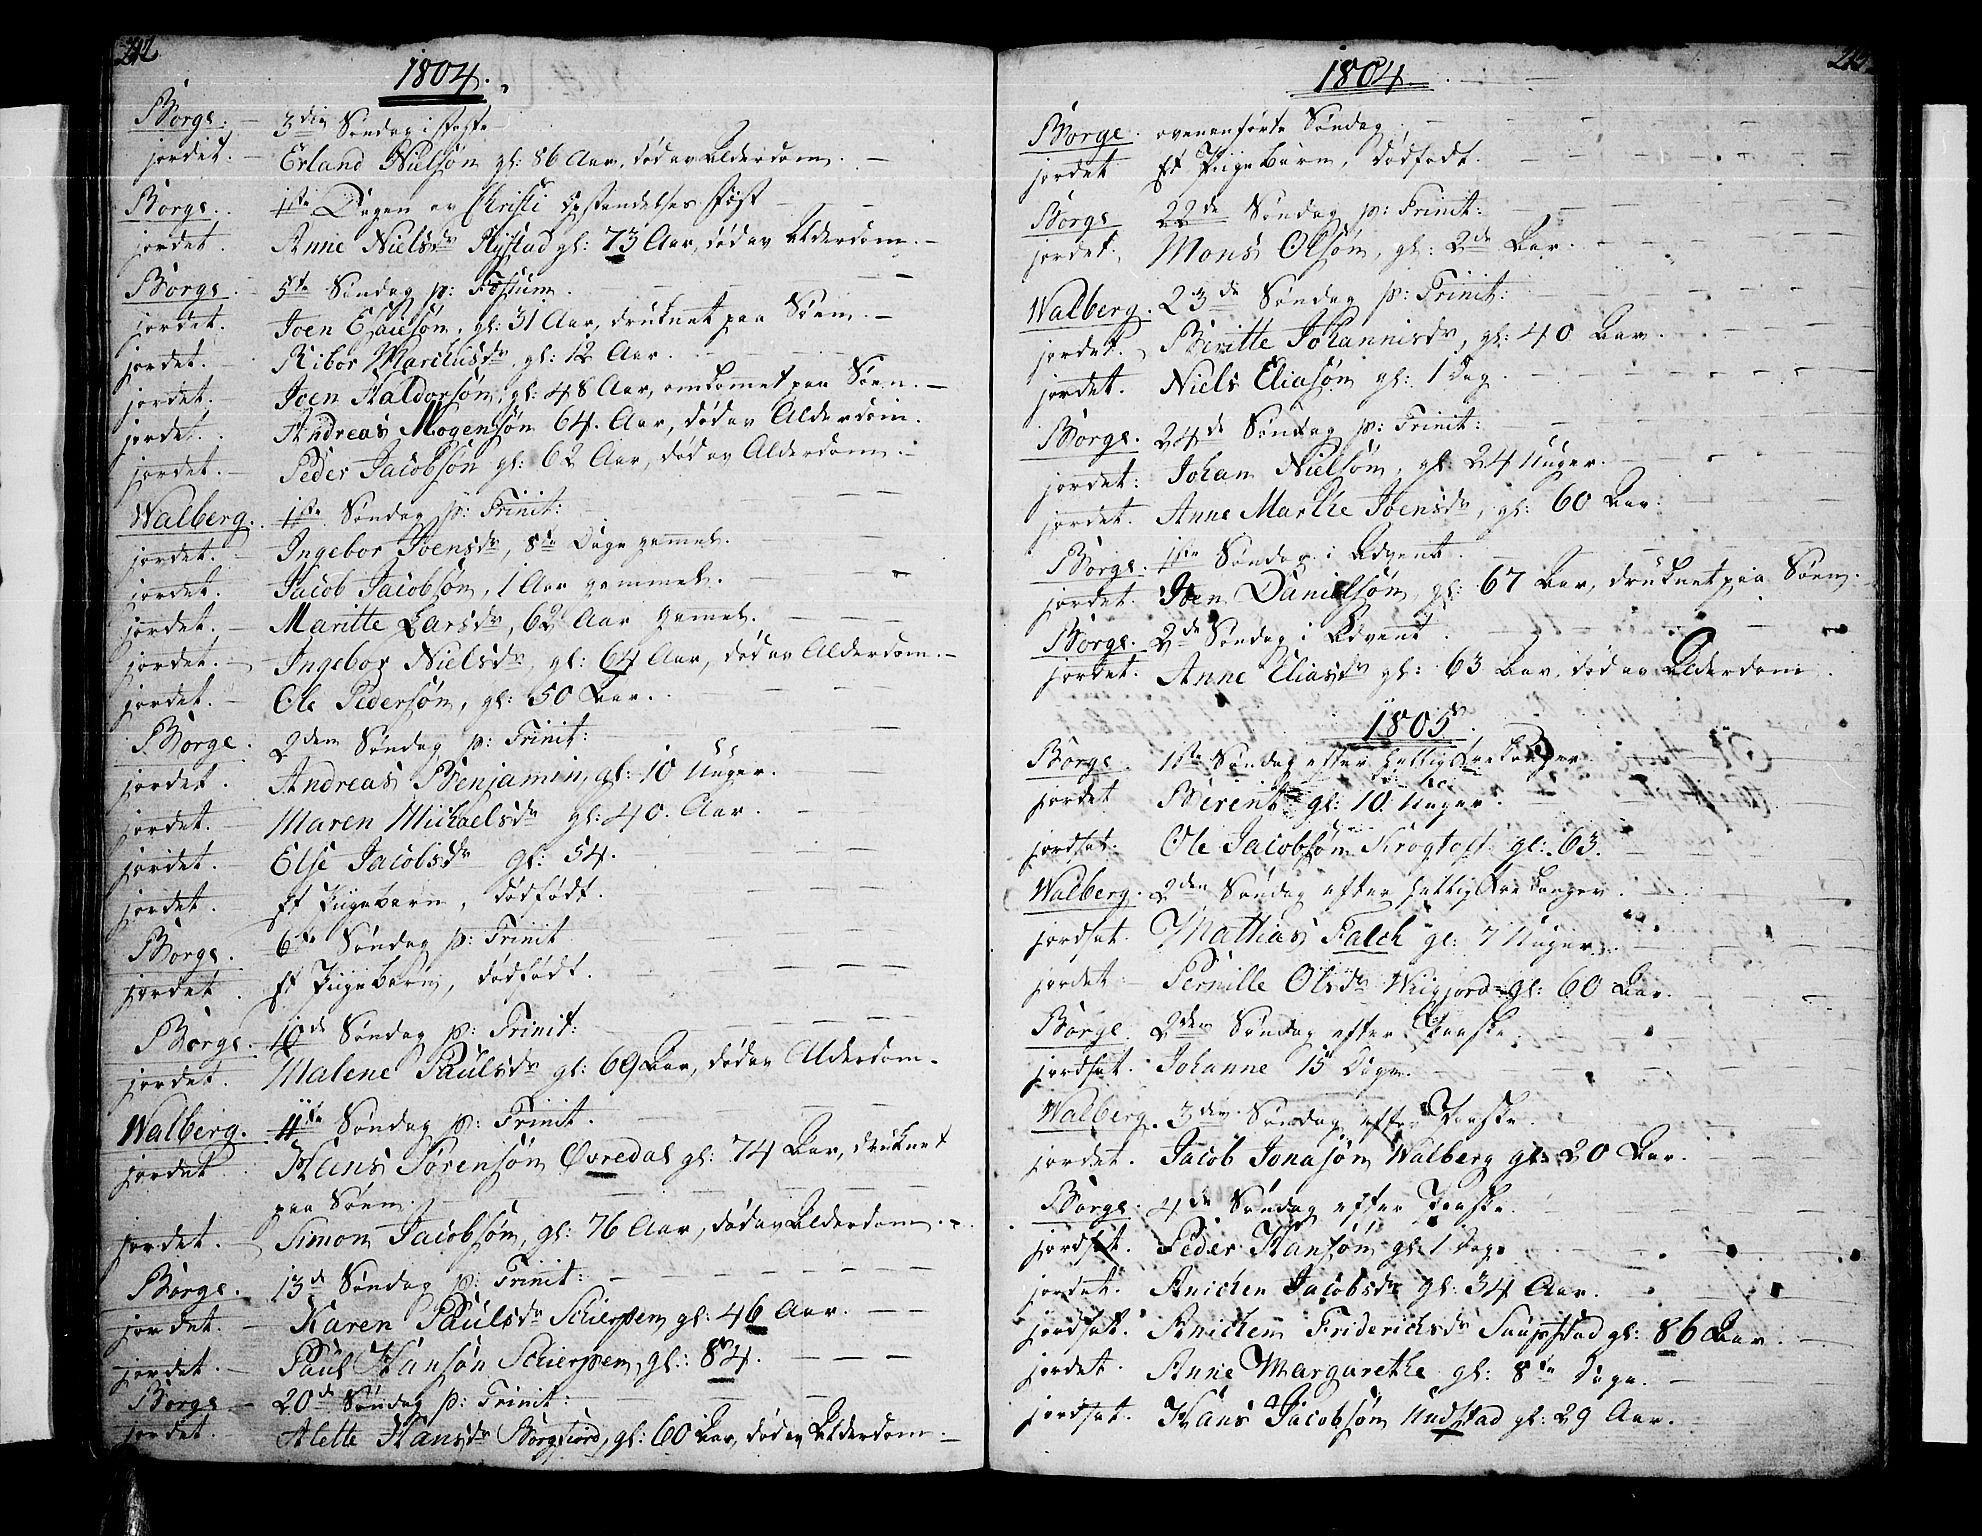 212
1804.
Borge. 3die Søndag i Faste
jordet. Erland Nielsøn gl: 86 Aar, død av Alderdom.
Borge. 1ste Dagen av Christi Opstandelses Fæst
jordet. Anne Nielsdr gl: 73 Aar, død av Alderdom.
Borge. 5te Søndag p:
jordet. Joen Esaiesøn, gl: 31 Aar, druknet paa Søen.
jordet. Kibor gl: 12 Aar.
jordet. Joen Haldorsøn, gl: 48 Aar, omkomet paa Søen.
jordet. Andreas Mogensøn 64. Aar, død av Alderdom.
jordet. Peder Jacobsøn gl: 62 Aar, død av Alderdom.
Walberg. 1ste Søndag p: Trinit:
jordet. Ingebor Joensdr, 8te Dage gamel.
jordet. Jacob Jacobsøn, 1 Aar gammel.
jordet. Maritte Larsdr, 62 Aar gamel.
jordet. Ingebor Nielsdr, gl: 64 Aar, død av Alderdom.
jordet. Ole Pedersøn, gl: 50 Aar.
Borge. 2den Søndag p: Trinit:
jordet. Andreas Benjamin, gl: 10 Uger.
jordet. Maren Michaelsdr gl: 40. Aar.
jordet. Else Jacobsdr gl: 54.
jordet. Et Pigebarn, dødfødt.
Borge. 6te Søndag p: Trinit
jordet. Et Pigebarn, dødfødt.
Borge. 10de Søndag p: Trinit:
jordet. Malene Paulsdr gl: 69 Aar, død av Alderdom.
Walberg. 11te Søndag p: Trinit.
jordet Hans Sørensøn Øvredal gl: 74 Aar, druknet
paa Søen.
jordet. Simon Jacobsøn, gl: 76 Aar, død av Alderdom.
Borge. 13de Søndag p: Trinit:
jordet. Karen Paulsdr Schierpen gl: 46 Aar.
jordet. Paul Hansøn Schierpen, gl: 84.
Borge 20de Søndag p: Trinit:
jordet. Alette Hansdr Borgfiord, gl: 60 Aar, død av Alderdom.
1804
Borge. ovenanførte Søndag
jordet Et Pigebarn, dødfødt.
Borge 22de Søndag p: Trinit:
jordet. Mons Olsøn, gl: 2de Aar.
Walberg. 23de Søndag p: Trinit:
jordet. Beritte Johannisdr, gl: 40 Aar.
jordet. Niels Eliasøn gl: 1 Dag.
Borge. 24de Søndag p: Trinit:
jordet: Johan Nielsøn, gl: 24 Uger.
jordet. Anne Marthe Joensdr, gl: 60 Aar:
Borge. 1ste Søndag i Advent.
jordet. Joen Danielsøn, gl: 67 Aar, druknet paa Søen.
Borge. 2de Søndag i Advent.
jordet. Anne Eliasdr gl: 63 Aar, død av Alderdom.
1805.
Borge. 1ste Søndag efter Hellig tre Konger
jordet Berent gl: 10 Uger.
jordset. Ole Jacobsøn gl: 63.
Walberg. 2den Søndag efter Hellig tre Konger.
jordset. Mathias Falch gl: 7 Uger.
jordet Pernille Olsdr gl: 60 Aar.
Borge. 2den Søndag efter Paaske.
jordset. Johanne 15 Dage.
Walberg. 3die Søndag efter Paaske.
jordet. Jacob Jonasøn Walberg gl: 20 Aar.
Borge. 4de Søndag efter Paaske.
jordset. Peder Hansøn gl: 1 Dag
jordet. Anichen Jacobsdr gl: 34 Aar.
jordset. Anichen Friderichsdr gl: 86 Aar
jordet. Anne Margarethe gl: 8te Dage.
jordset. Hans Jacobsøn Uudstad gl: 29 Aar.